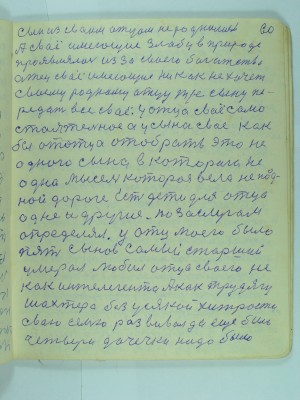 60
Сын из своим отцом не роднился
А своё имеющие злобу в природе
проявлялся из за своего богатства
отец своё имеющие ни как не хочет
своему родному отцу уже сыну пе-
редать все своё; у отца своё само
стоятельное а у сына свое как
бы от отца отобрать это не
одного сына в которого не
одна мысел которая вела не по од-
ной дороге Есть дети для отца
одне и другие. по заслугам
определял. у отца моего было
пять сынов самый старший
умерал любил отца своего не
как интелегента а как трудягу
шахтера без усякой хитрости
сваю семю развивал да еще было
четверо дочечки надо было